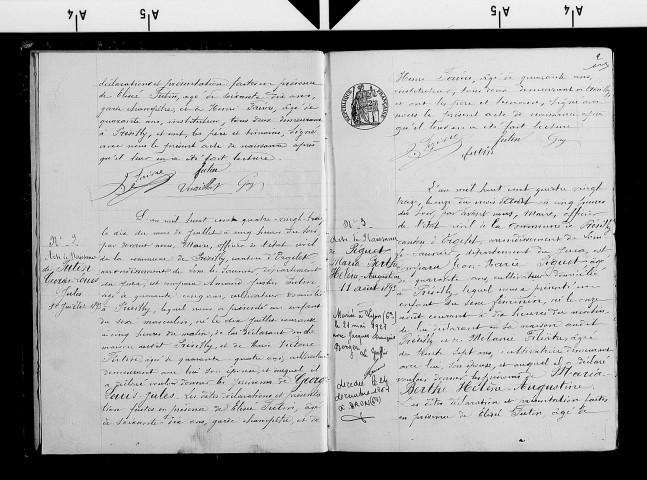 A4
A5
A5
A4
déclaration et présentation faites en présence
de Elisé Futin, âgé de soixante dix ans,
garde champêtre, et de Henri Faivre, âgé de
quarante ans, instituteur, tous deux demeurant
à Présilly, et ont, les père et témoins, signé
avec nous le présent acte de naissance après
qu'il leur en a été fait lecture.
Faivre Futin
Guy
N° 2
Acte de Naissance
de Futin
Georges Louis
Jules
10 Juillet 1893
L'an mil huit cent quatre vingt treize
le dix du mois de Juillet à cinq heures du soir
par devant nous, Maire, officier de l'état civil
de la commune de Présilly, canton d'Orgelet
arrondissement de Lons le Saunier, département
du Jura, est comparu Futin
âgé de quarante cinq ans, cultivateur domicilié
à Présilly, lequel nous a présenté un enfant
du sexe masculin, né le dix Juillet courant
à cinq heures du matin, de lui déclarant en sa
maison sise à Présilly, et de
âgée de quarante quatre ans, cultivatrice
demeurant avec lui, son épouse, et auquel il
a déclaré vouloir donner les prénoms de Georges
Louis Jules. Les dites déclaration et présenta-
tion faites en présence de Elisé Futin, âgé
de soixante dix ans, garde champêtre, et de
2
Henri Faivre, âgé de quarante ans,
instituteur, tous deux demeurant à Présilly
et ont les père et témoins, signé avec
nous le présent acte de naissance après
qu'il leur en a été fait lecture
Futin Guy
RÉPUBLIQUE FRANÇAISE
N° 3
Acte de Naissance
de Piquet
Maria Berthe
Hélène Augustine
11 août 1893
Mariée à Lyon (6e)
le 21 mai 1921
avec Jacques François
Le Greffier
décédée le 24
décembre 1967
à BRON (69)
L'an mil huit cent quatre vingt
treize, le onze du mois d'août à cinq heures
du soir, par devant nous, Maire, officier
de l'état civil de la commune de Présilly,
canton d'Orgelet, arrondissement de Lons
le Saunier, département du Jura, est
comparu Jean Marie Piquet, âgé
de quarante ans, cultivateur domicilié
à Présilly, lequel nous a présenté un
enfant du sexe féminin, né le onze
août courant à dix heures du matin,
de lui déclarant en sa maison sise à
Présilly et de Mélanie âgée
de trente sept ans, cultivatrice demeurant
avec lui, son épouse, et auquel il a déclaré
vouloir donner les prénoms de Maria
Berthe Hélène Augustine.
Les dites déclaration et présentation faites
en présence de Elisé Futin âgé de